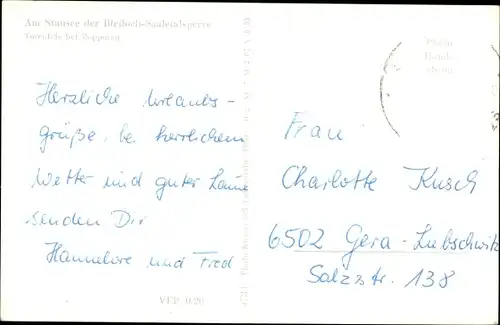 Am Stausee der Bleiloch-Saaletalsperre
Turmfels bei Zoppoten
Herzliche Urlaubs-
grüße be. herrlichem
Wetter und guter Laune
senden Dir
Hannelore und Fred
VEB 0.20
Photo
Handa-
abzug
Frau
Charlotte Kusch
6502 Gera-Liebschwitz
Salzstr. 138